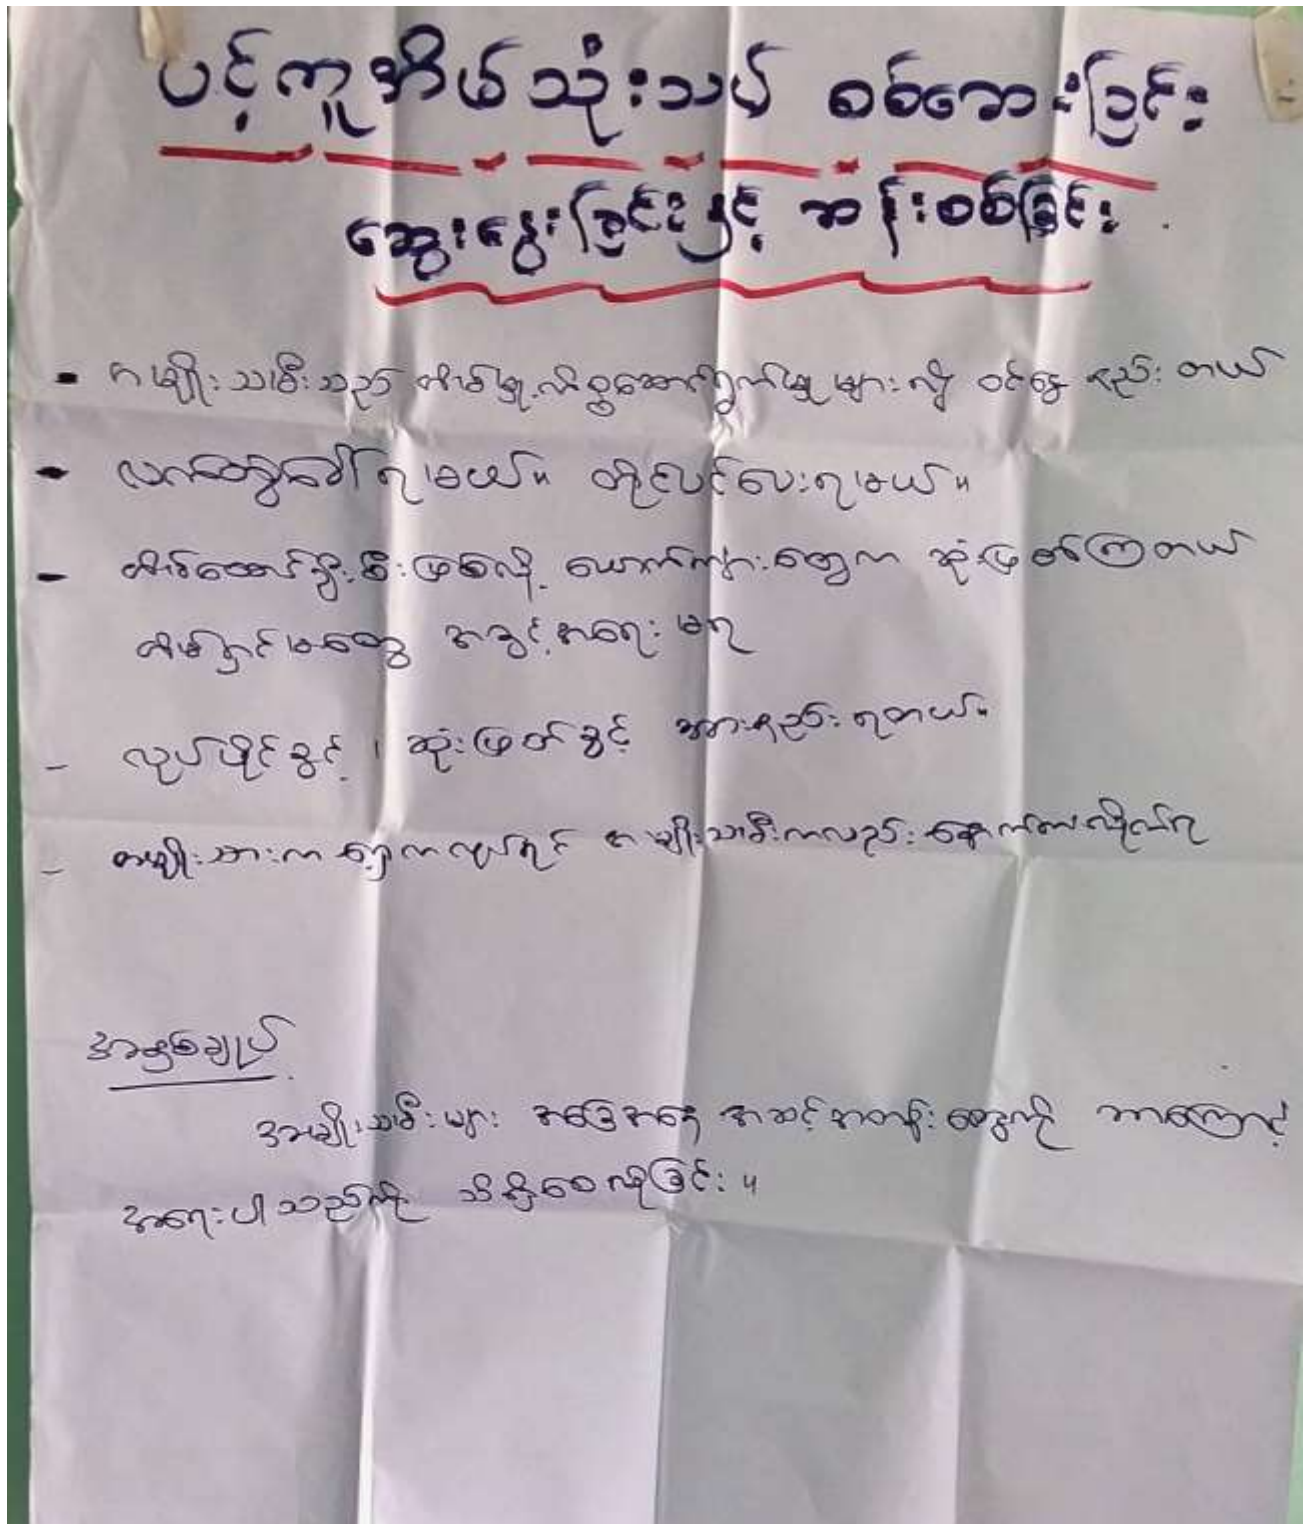 ပင့်ကူအိမ်သုံးသပ် စစ်ဆေးခြင်း
ဆွေးနွေးခြင်းနှင့် ဆန်းစစ်ခြင်း
- အမျိုးသမီးသည် အိမ်မှုကိစ္စဆောင်ရွက်မှုများလို့ ဝင်ငွေနည်းတယ်
- လက်ထပ်ခေါ်ရမယ်။ တိုင်ပင်ပေးရမယ်။
- အိမ်ထောင်ဦးစီးဖြစ်လို့ ယောက်ကျားတွေက ဆုံးဖြတ်ကြတယ်
အိမ်ရှင်မတွေ အခွင့်အရေး မရ
- လုပ်ပိုင်ခွင့် ၊ ဆုံးဖြတ်ခွင့် အားနည်းရတယ်။
- အမျိုးသားက ရှေ့ကလုပ်ရင် အမျိုးသမီးကလည်း နောက်ကလိုက်ရ
အနှစ်ချုပ်
အမျိုးသမီးများ အခြေအနေ အဆင့်အတန်းတွေကို ဘာကြောင့်
အရေးပါသည်ကို သိရှိစေလိုခြင်း။